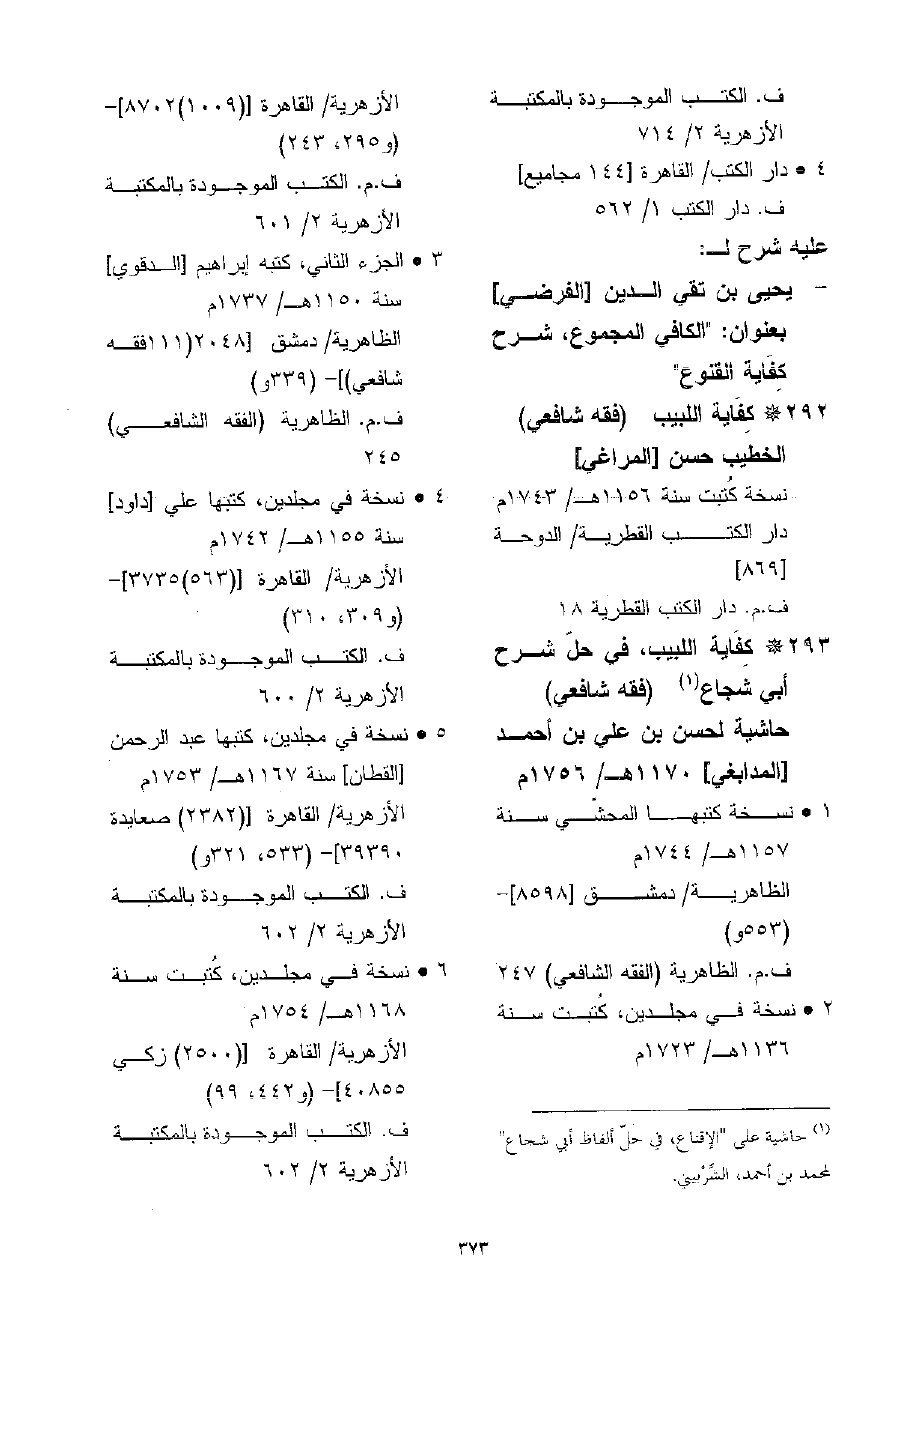 ف. الكتب الموجودة بالمكتبة
الأزهرية ٢/ ٧١٤
٤ • دار الكتب/ القاهرة [١٤٤ مجاميع]
ف. دار الكتب ١/ ٥٦٢
عليه شرح لـ:
- يحيى بن تقي الدين [الفرضي]
بعنوان: "الكافي المجموع، شرح
كفاية القنوع"
٢٩٢* كِفَاية اللبيب (فقه شافعي)
الخطيب حسن [المراغي]
نسخة كُتبت سنة ١١٥٦هـ/ ١٧٤٣م
دار الكتب القطرية/ الدوحة
[٨٦٩]
ف.م. دار الكتب القطرية ١٨
٢٩٣* كِفَاية اللبيب، في حلّ شرح
أبي شجاع(١) (فقه شافعي)
حاشية لحسن بن علي بن أحمد
[المدابغي] ١١٧٠هـ/ ١٧٥٦م
١ • نسخة كتبها المحشّي سنة
١١٥٧هـ/ ١٧٤٤م
الظاهرية/ دمشق [٨٥٩٨]-
(٥٥٣و)
ف.م. الظاهرية (الفقه الشافعي) ٢٤٧
٢ • نسخة في مجلدين، كُتبت سنة
١١٣٦هـ/ ١٧٢٣م
(١) حاشية على "الإقناع، في حلّ ألفاظ أبي شجاع"
لمحمد بن أحمد، الشِّرْبيني.
الأزهرية/ القاهرة [(١٠٠٩)٨٧٠٢]-
(و٢٩٥، ٢٤٣)
ف.م. الكتب الموجودة بالمكتبة
الأزهرية ٢/ ٦٠١
٣ • الجزء الثاني، كتبه إبراهيم [الدقوي]
سنة ١١٥٠هـ/ ١٧٣٧م
الظاهرية/ دمشق [٢٠٤٨(١١١فقه
شافعي)]- (٣٣٩و)
ف.م. الظاهرية (الفقه الشافعي)
٢٤٥
٤ • نسخة في مجلدين، كتبها علي [داود]
سنة ١١٥٥هـ/ ١٧٤٢م
الأزهرية/ القاهرة [(٥٦٣)٣٧٣٥]-
(و٣٠٩، ٣١٠)
ف. الكتب الموجودة بالمكتبة
الأزهرية ٢/ ٦٠٠
٥ • نسخة في مجلدين، كتبها عبد الرحمن
[القطان] سنة ١١٦٧هـ/ ١٧٥٣م
الأزهرية/ القاهرة [(٢٣٨٢) صعايدة
٣٩٣٩٠]- (٥٣٣، ٣٢١و)
ف. الكتب الموجودة بالمكتبة
الأزهرية ٢/ ٦٠٢
٦ • نسخة في مجلدين، كُتبت سنة
١١٦٨هـ/ ١٧٥٤م
الأزهرية/ القاهرة [(٢٥٠٠) زكي
٤٠٨٥٥]- (و٤٤٢، ٩٩)
ف. الكتب الموجودة بالمكتبة
الأزهرية ٢/ ٦٠٢
٣٧٣